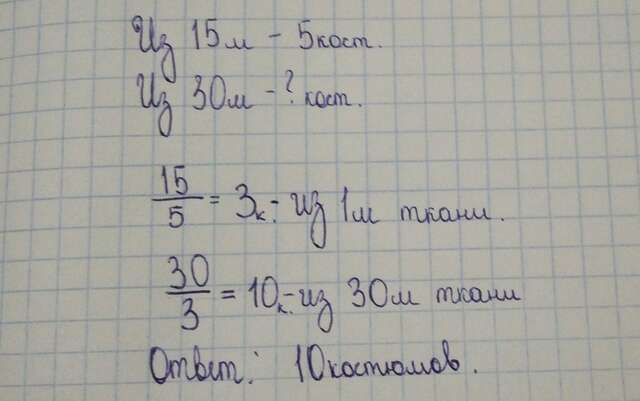 Из 15м - 5кост.
Из 30м - ? кост.
15/5 = 3к. - из 1м ткани.
30/3 = 10к. - из 30м ткани
Ответ: 10костюмов.